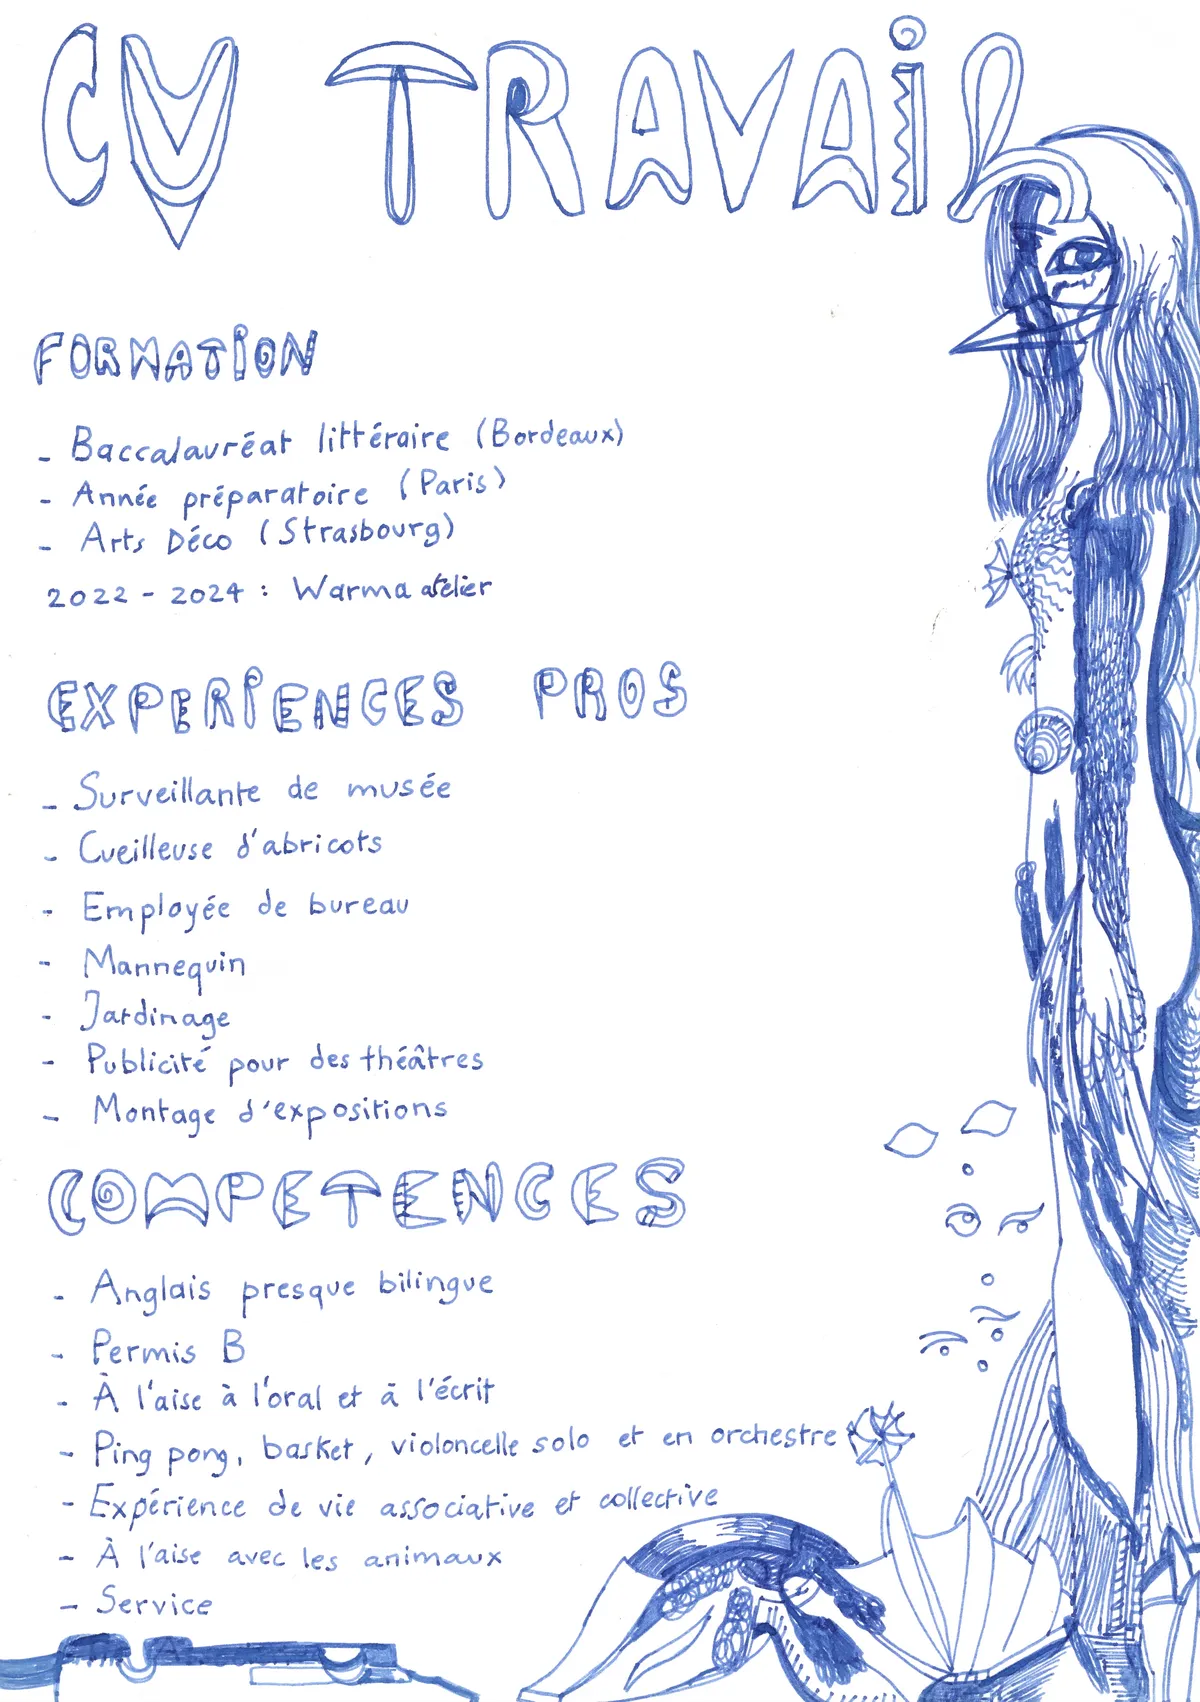 CV TRAVAIL
FORMATION
- Baccalauréat littéraire (Bordeaux)
- Année préparatoire (Paris)
- Arts Déco (Strasbourg)
2022 - 2024 : Warma atelier
EXPERIENCES PROS
- Surveillante de musée
- Cueilleuse d'abricots
- Employée de bureau
- Mannequin
- Jardinage
- Publicité pour des théâtres
- Montage d'expositions
COMPETENCES
- Anglais presque bilingue
- Permis B
- À l'aise à l'oral et à l'écrit
- Ping pong, basket, violoncelle solo et en orchestre
- Expérience de vie associative et collective
- À l'aise avec les animaux
- Service